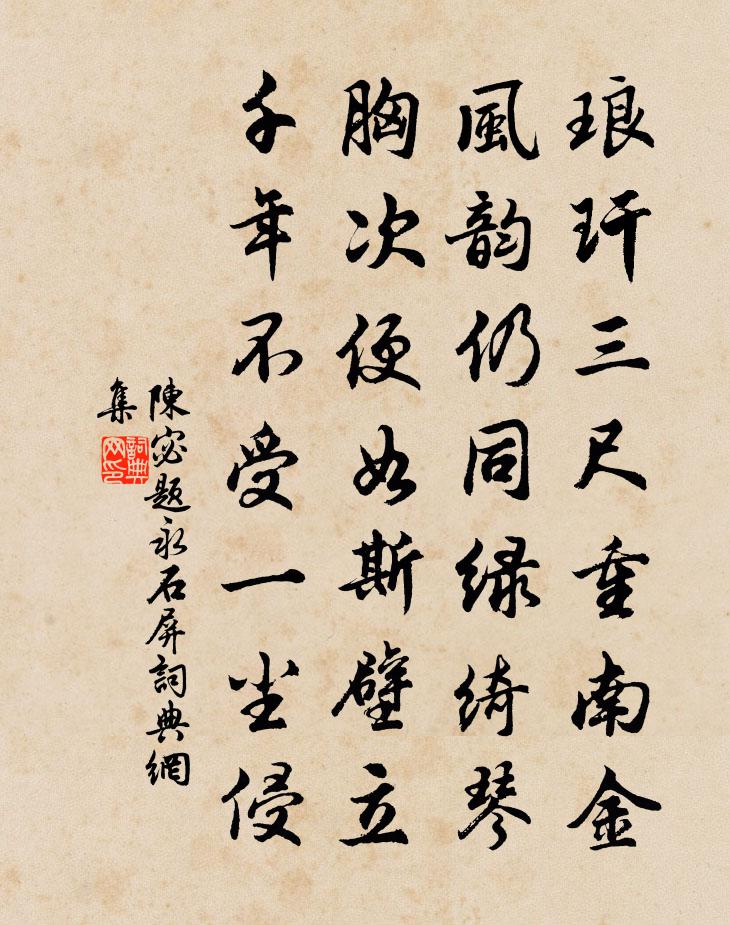 琅玕三尺重南金
風韵仍同緑綺琴
胸次便如斯壁立
千年不受一尘侵
陳宓題永石屏詞典網
集
詞典
网印